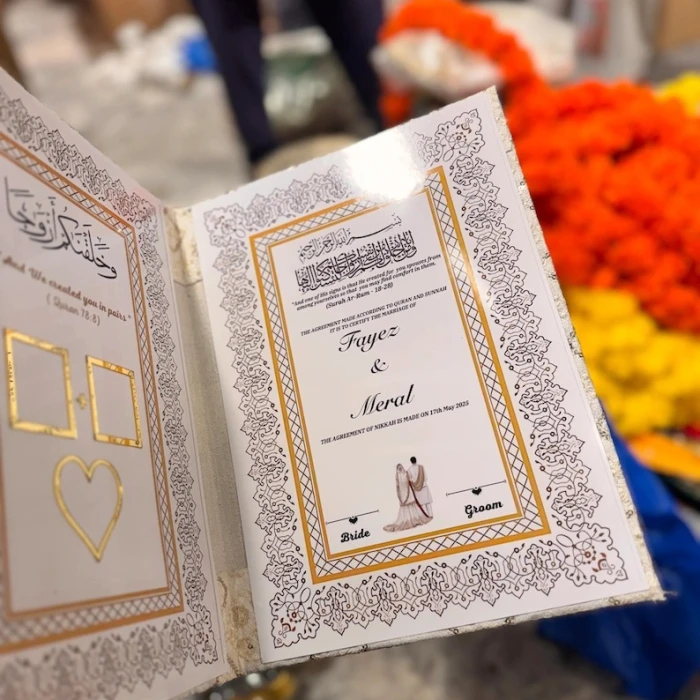 وَخَلَقْنَكُمْ أَزْوَاجًا
And We created you in pairs"
( Quran 78:8)
بسم الله الرحمن الرحيم
"And one of His signs is that He created for you spouses from
among yourselves so that you may find comfort in them.
(Surah Ar-Rum - 18-28)
THE AGREEMENT MADE ACCORDING TO QURAN AND SUNNAH
IT IS TO CERTIFY THE MARRIAGE OF
Fayez
&
Meral
THE AGREEMENT OF NIKKAH IS MADE ON 17th May 2025
Bride
Groom